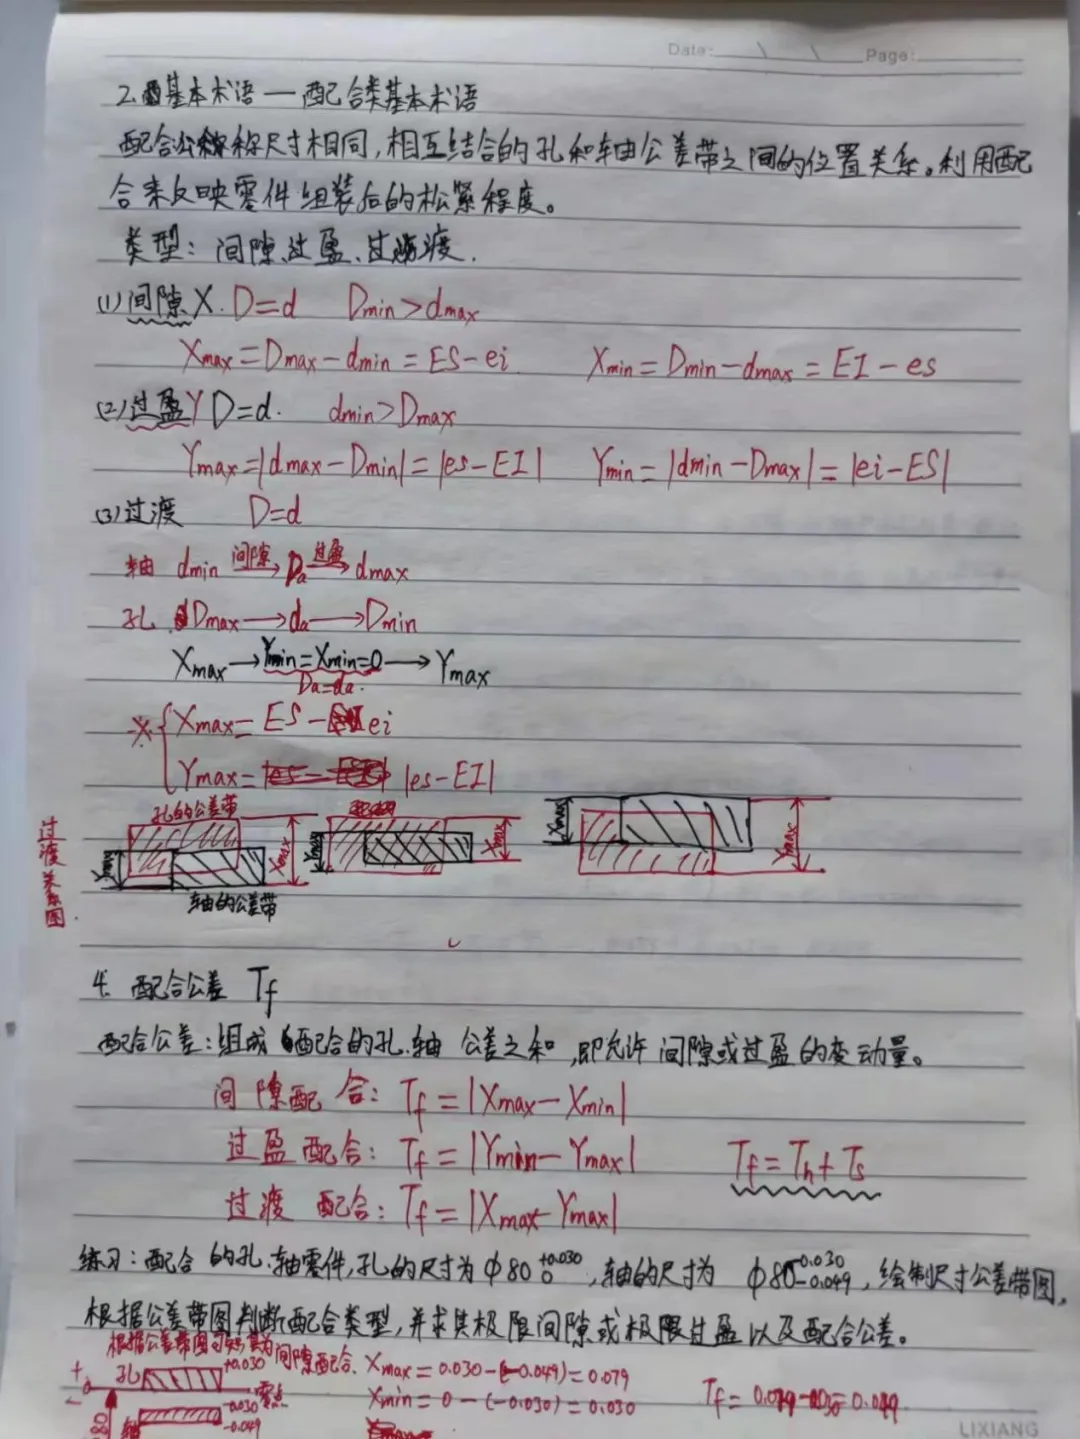 Date: Page:
2.基本术语—配合类基本术语
配合:公称尺寸相同,相互结合的孔和轴公差带之间的位置关系。利用配
合来反映零件组装后的松紧程度。
类型:间隙、过盈、过渡.
(1)间隙X. D=d Dmin>dmax
Xmax=Dmax-dmin=ES-ei Xmin=Dmin-dmax=EI-es
(2)过盈Y D=d. dmin>Dmax
Ymax=|dmax-Dmin|=|es-EI| Ymin=|dmin-Dmax|=|ei-ES|
(3)过渡 D=d
轴 dmin 间隙→ Da 过盈→ dmax
孔 Dmax→da→Dmin
Xmax→Ymin=Xmin=0→Ymax
Da=da.
※{Xmax=ES-ei
Ymax=|es-EI|
孔的公差带
Ymax Xmax Ymax Xmax Xmax Ymax
轴的公差带
过渡关系图
4. 配合公差 Tf
配合公差:组成配合的孔.轴 公差之和,即允许间隙或过盈的变动量。
间隙配合: Tf=|Xmax-Xmin|
过盈配合: Tf=|Ymin-Ymax| Tf=Th+Ts
过渡配合: Tf=|Xmax-Ymax|
练习:配合的孔.轴零件,孔的尺寸为φ80 +0.030 0,轴的尺寸为 φ80 -0.030 -0.049,绘制尺寸公差带图,
根据公差带图判断配合类型,并求其极限间隙或极限过盈以及配合公差。
根据公差带图可知其为间隙配合. Xmax=0.030-(-0.049)=0.079
+ 0 - 孔 +0.030 Xmin=0-(-0.030)=0.030
轴 -0.030 -0.049 Tf=0.079-0.030=0.049
LIXIANG